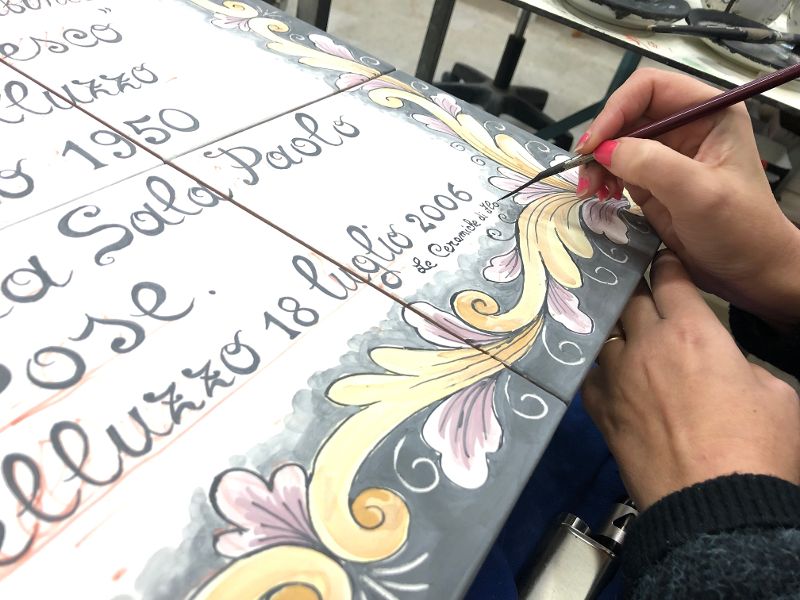 esco"
lluzzo
o 1950
a Sala Paolo
pose.
elluzzo 18 luglio 2006
Le Ceramiche di